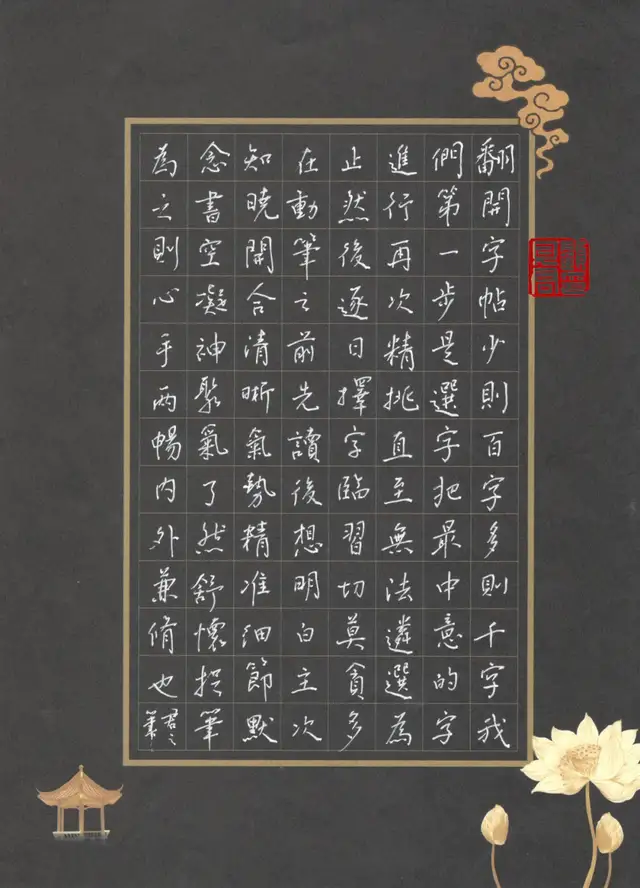 翻開字帖少則百字多則千字我
們第一步是選字把最中意的字
進行再次精挑直至無法遴選為
止然後逐日擇字臨習切莫貪多
在動筆之前先讀後想明白主次
知曉開合清晰氣勢精准细節默
念書空凝神聚氣了然舒懷提筆
為之則心手兩暢内外兼脩也